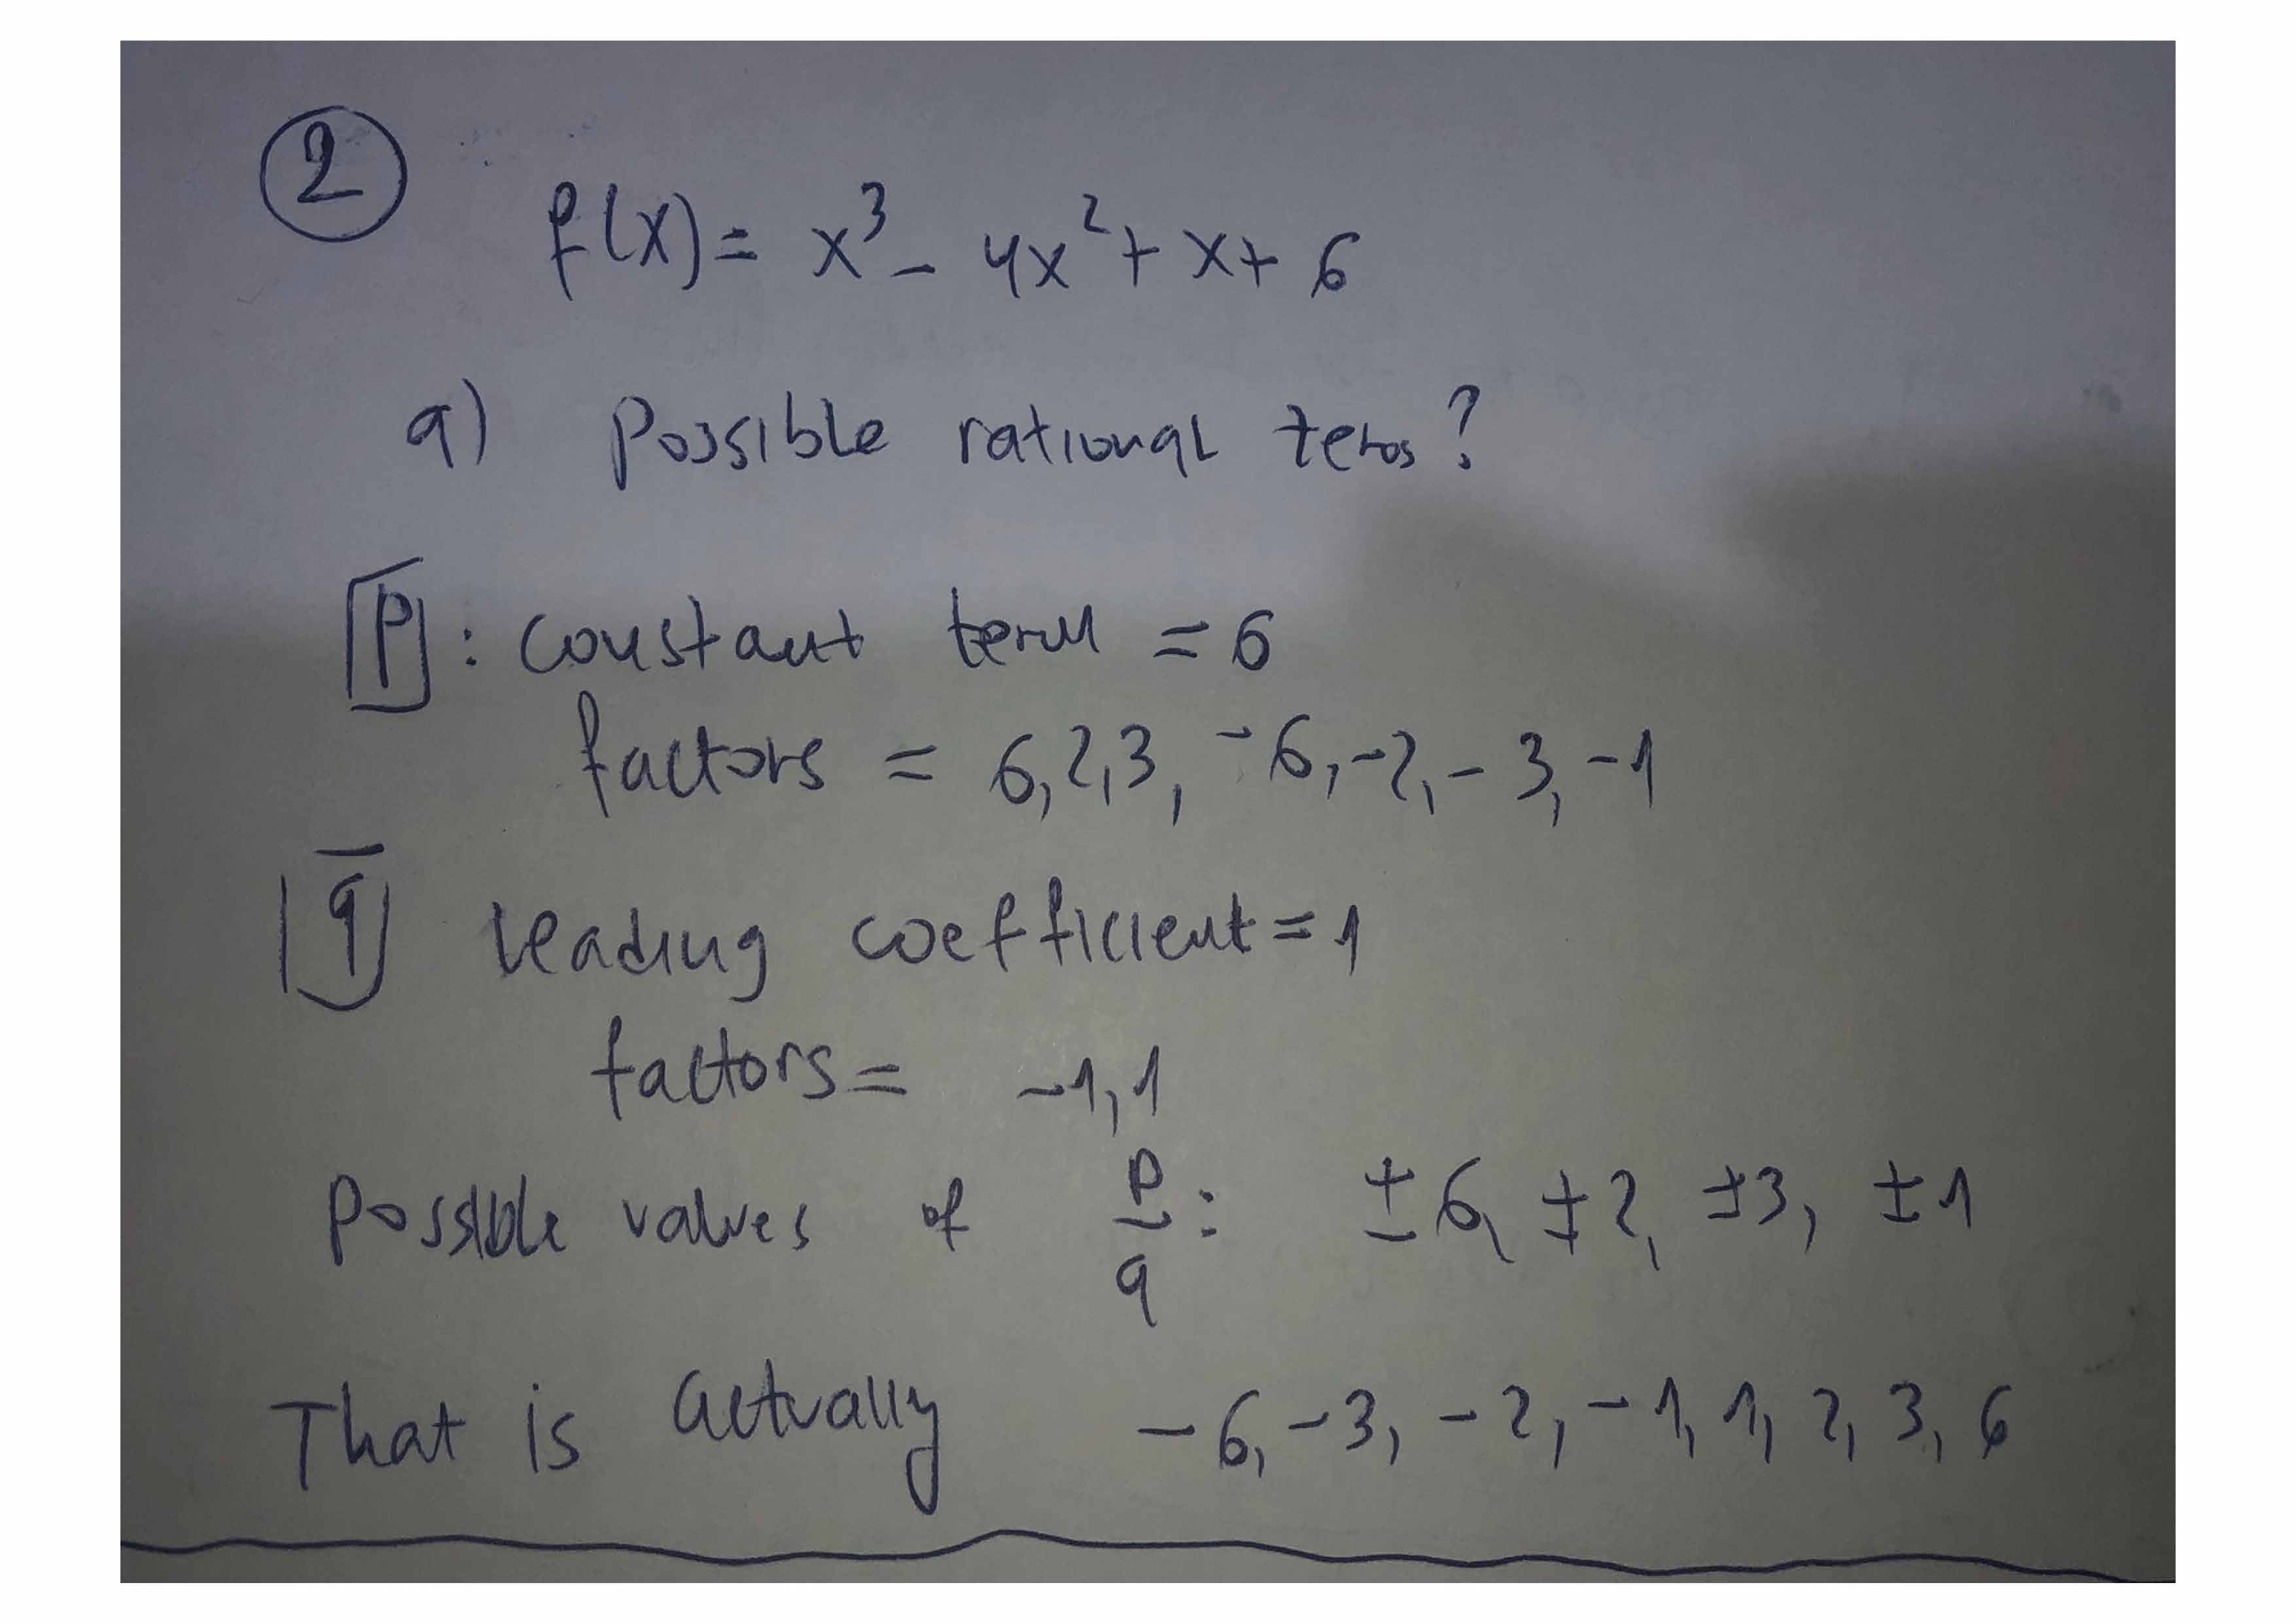 2
f(x) = x³ - 4x² + x + 6
a) Possible rational zeros?
p : constant term = 6
factors = 6, 2, 3, -6, -2, -3, -1
q leading coefficient = 1
factors = -1, 1
possible values of p/q : ±6, ±2, ±3, ±1
That is actually -6, -3, -2, -1, 1, 2, 3, 6